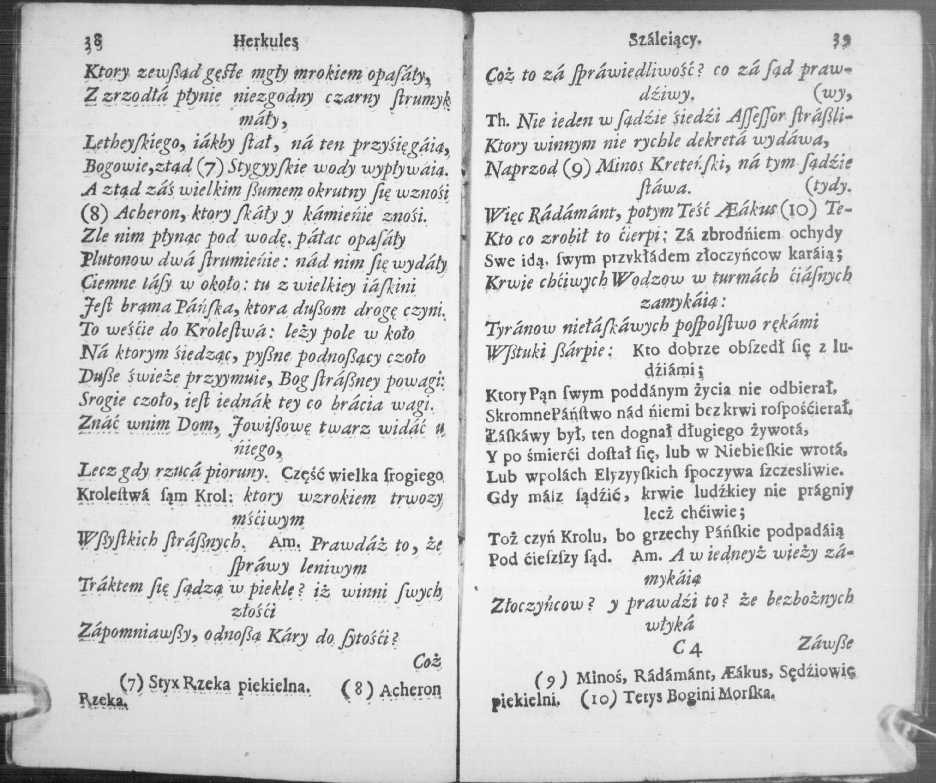 38 Herkules
Ktory zewſßąd gęſte mgły mrokiem opaſáły,
Z zrzodłá płynie niezgodny czarny ſtrumyk
máły,
Letheyſkiego, iákby ſtał, ná ten przyśięgáią,
Bogowie,ztąd (7) Stygyyſkie wody wypływáią.
A ztąd záś wielkim ſſumem okrutny ſię wznośi
(8) Acheron, ktory ſkáły y kámieńie znośi.
Zle nim płynąc pod wodę. páłac opaſáły
Plutonow dwá ſtrumieńie: nád nim ſię wydáły
Ciemne láſy w około: tu z wielkiey iáſkini
Jeſt brąma Páńſka, ktora dußom drogę czyni.
To weśćie do Kroleſtwá: leży pole w koło
Ná ktorym śiedząc, pyßne podnoßący czoło
Duße świeże przyymuie, Bog ſtráßney powagi:
Srogie czoło, ieſt iednák tey co brácia wagi.
Znáć wnim Dom, Jowißowę twarz widáć u
ńiego,
Lecz gdy rzucá pioruny. Część wielka ſrogiego
Kroleſtwá ſąm Krol: ktory wzrokiem trwozy
mśćiwym
Wßyſtkich ſtráßnych. Am. Prawdáż to, że
ſpráwy leniwym
Tráktem ſię ſądzą w piekle? iż winni ſwych
złośći
Zápomniawßy, odnoßą Káry do ſytośći?
Coż
(7) Styx Rzeka piekielna. (8) Acheron
Rzeka.
Száleiący. 39
Coż to zá ſpráwiedliwość? co zá ſąd praw-
dźiwy. (wy,
Th. Nie ieden w ſądzie śiedźi Aſſeſſor ſtráßli-
Ktory winnym nie rychle dekretá wydáwa,
Naprzod (9) Minos Kreteńſki, ná tym ſądzie
ſtáwa. (tydy.
Więc Rádámánt, potym Teść Æákus (10) Te-
Kto co zrobił to ćierpi; Zá zbrodńiem ochydy
Swe idą, ſwym przykłádem złoczyńcow karáią;
Krwie chćiwych Wodzow w turmách ćiáſnych
zamykáią:
Tyránow niełáſkáwych poſpolſtwo rękámi
Wßtuki ßárpie: Kto dobrze obſzedł ſię z lu-
dźiámi;
Ktory Pąn ſwym poddánym życia nie odbierał,
Skromne Páńſtwo nád ńiemi bez krwi roſpośćierał,
Łáſkáwy był, ten dognał długiego żywotá,
Y po śmierći doſtał ſię, lub w Niebieſkie wrotá,
Lub wpolách Elyzyyſkich ſpoczywa ſzczesliwie.
Gdy máiz ſądźić, krwie ludźkiey nie prágniy
lecż chćiwie;
Toż czyń Krolu, bo grzechy Páńſkie podpadáią
Pod ćieſzſzy ſąd. Am. A w iedneyż wieży zá-
mykáią
Złoczyńcow? y prawdźi to? że bezbożnych
wtyká
C 4 Záwße
(9) Minoś, Rádámánt, Æákus, Sędźiowię
piekielni. (10) Tetys Bogini Morſka.